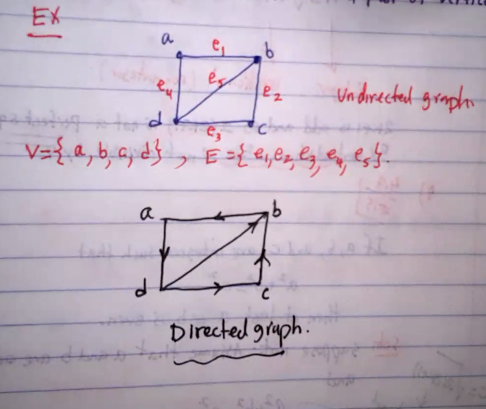 Ex
a e₁ b
e₄ e₅ e₂
d e₃ c
Undirected graph.
V={a, b, c, d}, E={e₁, e₂, e₃, e₄, e₅}.
a b
d c
Directed graph.